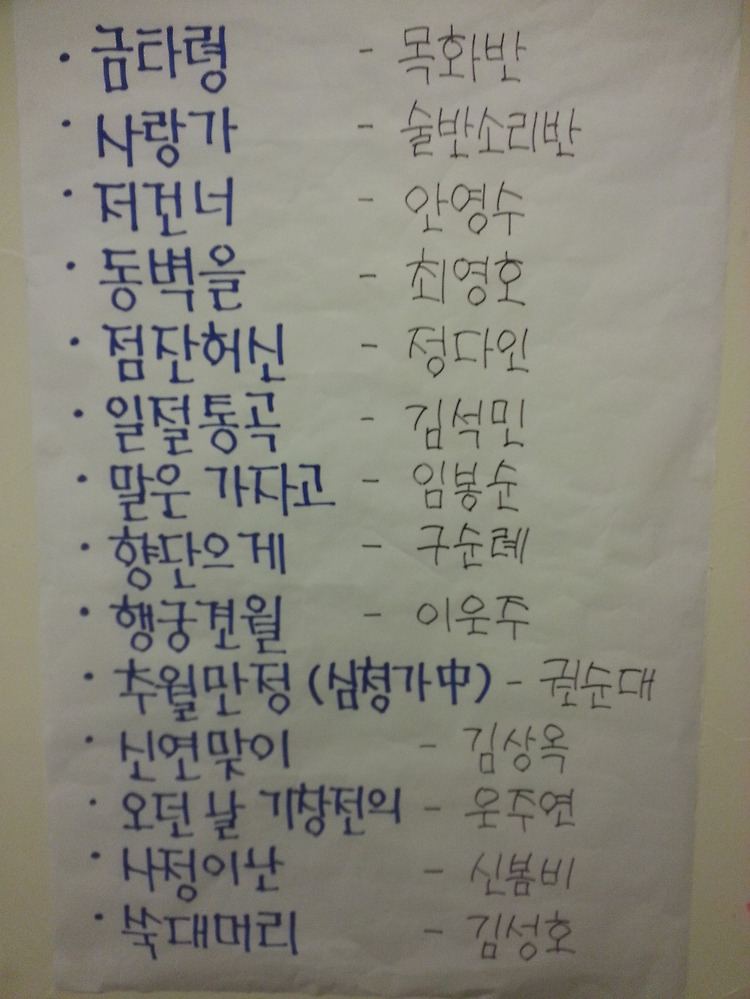 · 금타령 - 목화반
· 사랑가 - 술반소리반
· 저건너 - 안영수
· 동벽을 - 최영호
· 점잔허신 - 정다인
· 일절통곡 - 김석민
· 말은 가자고 - 임봉순
· 향단으게 - 구순례
· 행궁견월 - 이웃주
· 추월만정 (심청가中) - 권순대
· 신연맞이 - 김상옥
· 오던 날 기창전의 - 운주연
· 사정이난 - 신봄비
· 쑥대머리 - 김성호